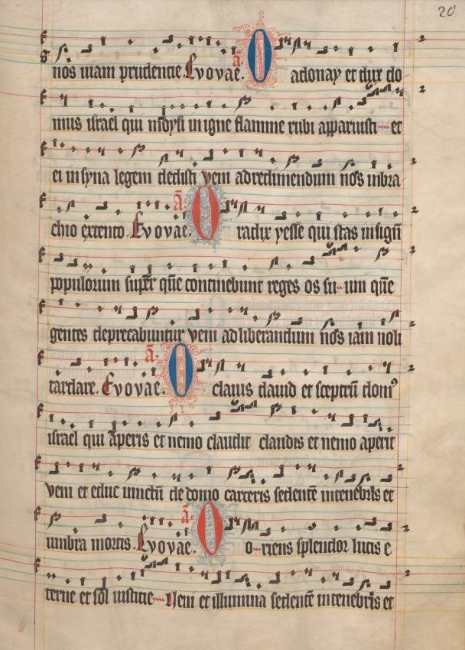 20
nos uiam prudentie Evovae. O adonay et dux do
mus israel qui moysi in igne flamme rubi apparuisti et
ei in syna legem dedisti veni ad redimendum nos in bra
chio extento. Evovae. O radix yesse qui stas in signū
populorum super quē continebunt reges os su-um quē
gentes deprecabuntur veni ad liberandum nos iam noli
tardare. Evovae. O clauis dauid et sceptrū domꝰ
israel qui aperis et nemo claudit claudis et nemo aperit
veni et educ uinctū de domo carceris sedentē in tenebris et
umbra mortis. Evovae. O o-riens splendor lucis e
terne et sol iusticie Veni et illumina sedentē in tenebris et